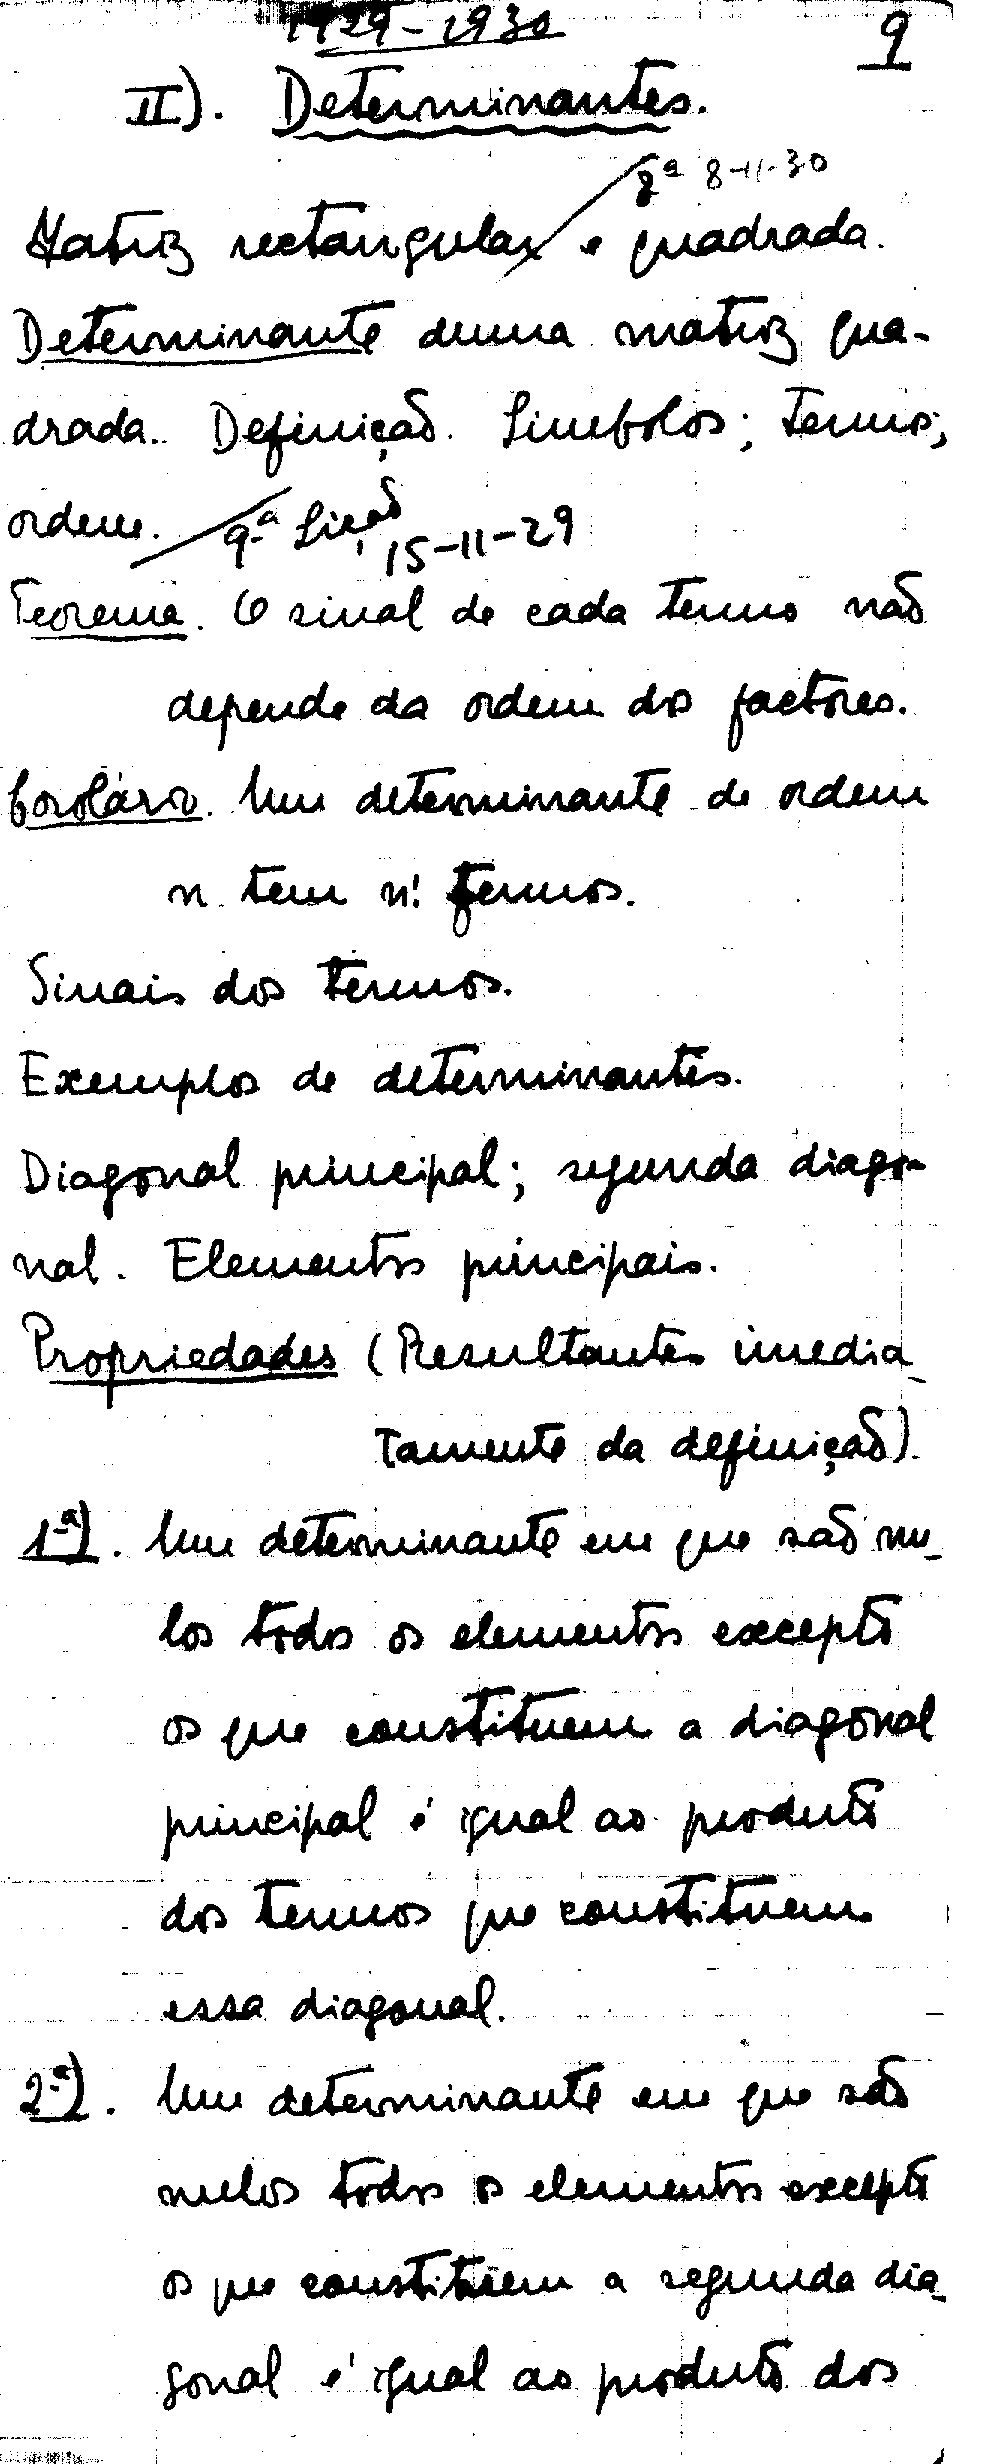 1929-1930
9
II). Determinantes.
8ª 8-11-30
Matriz rectangular e quadrada.
Determinante duma matriz qua-
drada. Definição. Simbolos; termo;
ordem. 9.ª Lição 15-11-29
Teorema. O sinal de cada termo não
depende da ordem dos factores.
Corolário. Um determinante de ordem
n tem n! termos.
Sinais dos termos.
Exemplos de determinantes.
Diagonal principal; segunda diago-
nal. Elementos principais.
Propriedades (Resultantes imedia_
tamente da definição).
1.ª). Um determinante em que são nu_
los todos os elementos excepto
os que constituem a diagonal
principal é igual ao produto
dos termos que constituem
essa diagonal.
2.ª). Um determinante em que são
nulos todos os elementos excepto
os que constituem a segunda dia_
gonal é igual ao produto dos